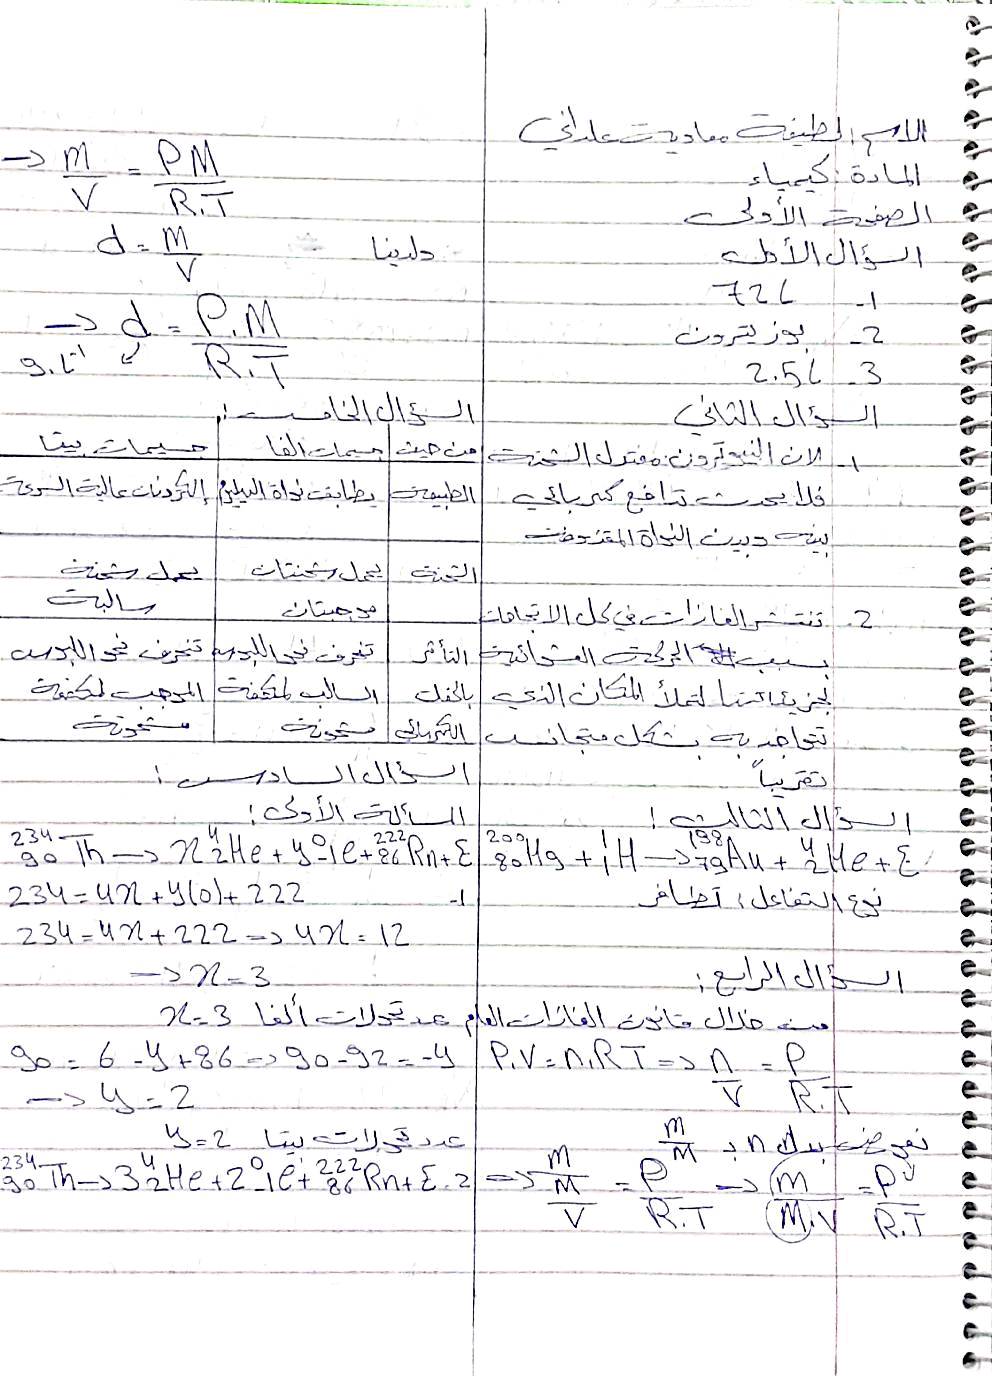 الاسم: لطيفة معاوية علداني
المادة: كيمياء
الصفحة الأولى
السؤال الأول
1- 72L
2- بوزيترون
3- 2.5L
السؤال الثاني
1- لان النيوترون معتدل الشحنة
فلا يحدث تدافع كهربائي
بينه وبين النواة المقذوفة
2- تنتشر الغازات في كل الاتجاهات
بسبب الحركة العشوائية
لجزيئاتها لتملأ المكان الذي
تتواجد به بشكل متجانس
تقريباً
السؤال الثالث:
²⁰⁰₈₀Hg + ₁H → ¹⁹⁸₇₉Au + ⁴₂He + E
نوع التفاعل: تطافر
السؤال الرابع:
من خلال قانون الغازات العام
P.V = n.RT ⇒ n/V = P/R.T
نعوض بدل n بـ m/M
⇒ (m/M)/V = P/R.T → m/M.V = P/R.T
→ m/V = PM/R.T
ولدينا d = m/V
→ d = P.M/R.T
g.L⁻¹
السؤال الخامس:
من حيث | جسيمات الفا | جسيمات بيتا
الطبيعة | يطابق نواة الهيليوم | إلكترونات عالية السرعة
الشحنة | يحمل شحنتان موجبتان | يحمل شحنة سالبة
التأثر بالحقل الكهربائي | تنحرف نحو اللبوس السالب لمكثفة مشحونة | تنحرف نحو اللبوس الموجب لمكثفة مشحونة
السؤال السادس:
المسألة الأولى:
²³⁴₉₀Th → x ⁴₂He + y ⁰₋₁e + ²²²₈₆Rn + E
1- 234 = 4x + y(0) + 222
234 = 4x + 222 ⇒ 4x = 12
→ x = 3
عدد تحولات ألفا x = 3
90 = 6 - y + 86 ⇒ 90 - 92 = -y
→ y = 2
عدد تحولات بيتا y = 2
2- ²³⁴₉₀Th → 3 ⁴₂He + 2 ⁰₋₁e + ²²²₈₆Rn + E